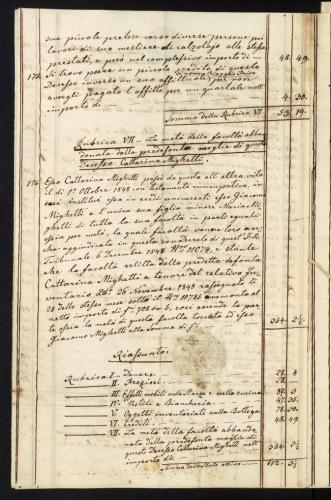 sue piccole pretese verso diverse persone pei
lavori di suo mestiere di calzolajo alle stesse
prestati, e però nel complessivo importo di — 48. 49.
175. Si trovò pure un piccolo credito di questo
Decesso inverso un suo
avergli pagato l'affitto per un quartale nell'
importo di 4. 30.
Somma della Rubrica VI 53. 19.
Rubrica VII – La metà della facoltà abban-
donata dalla predefonta moglie di questo
Decesso Cattarina Mighetti.
176. Essa Cattarina Mighetti passò da questa all'altra vita
il dì 1º Ottobre 1848 con testamento nuncupativo, e
così instituì essa in eredi universali esso Giacomo
Mighetti e l'unica sua figlia minore Maria Mi-
ghetti di tutta la sua facoltà in parte eguali
ossia per metà, la quale facoltà venne loro an-
che aggiudicata in questo conDecreto di quest' I. R.
Tribunale 6 Decembre 1848 Nº 11074, e stante
che la facoltà relitta dalla predetta defonta
Cattarina Mighetti a tenore del relativo In-
ventario Dato 26. Novembre 1848 rassegnato li
28 dello stesse mese sotto il Nº 10786 ammonta al
netto importo di f
te ossia la metà di questa facoltà toccata ad esso
Giacomo Mighetti alla Somma di f 354. 2½
Riassunto:
Rubrica I – Danaro 28. 4
— II. Preziosi
— III. Effetti mobili nelle Stanze e nella cucina
— IV. Vestiti e Biancheria 47. 35.
— V. Oggetti inventariati nella Bottega 78. 30.
— VI. Crediti 48. 49
— VII. La metà della facoltà abbando-
nata dalla predefonta moglie di
questo Decesso Cattarina Mighetti nell'
importo di 354. 2½
Somma dello Stato attivo 672. 3½